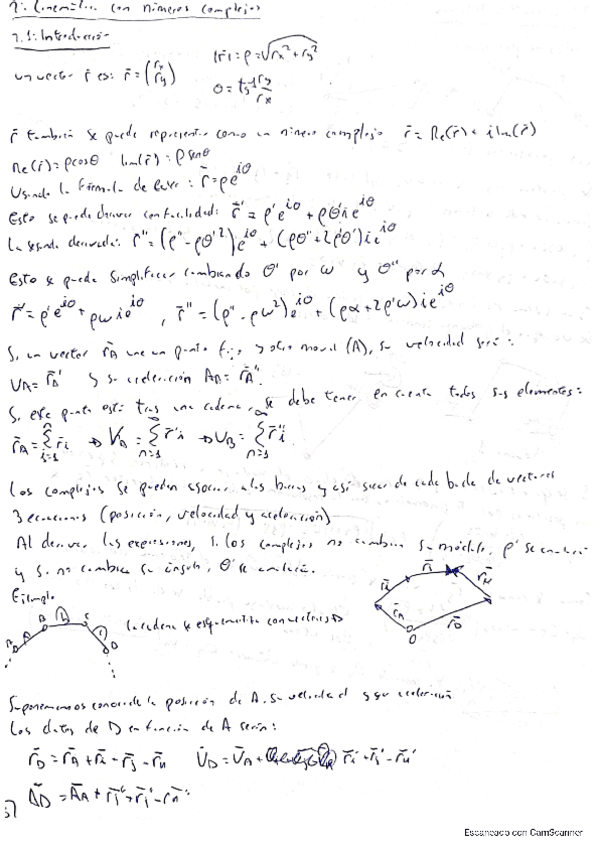 7. Cinemática con números complejos
7.1: Introducción
un vector r̄ es: r̄ = (rx ry) |r̄| = ρ = √rx² + ry²
θ = tg⁻¹ ry/rx
r̄ también se puede representar como un número complejo r̄ = Re(r̄) + i Im(r̄)
Re(r̄) = ρcosθ Im(r̄) = ρ senθ
Usando la fórmula de Euler: r̄ = ρe^iθ
Esto se puede derivar con facilidad: r̄' = ρ'e^iθ + ρθ'ie^iθ
La segunda derivada: r̄'' = (ρ'' - ρθ'²)e^iθ + (ρθ'' + 2ρ'θ')ie^iθ
Esto se puede simplificar cambiando θ' por ω y θ'' por α
r̄' = ρ'e^iθ + ρωie^iθ, r̄'' = (ρ'' - ρω²)e^iθ + (ρα + 2ρ'ω)ie^iθ
Si un vector r̄A une un punto fijo y otro móvil (A), su velocidad será:
VA = r̄A' y su aceleración AA = r̄A''.
Si este punto está tras una cadena, se debe tener en cuenta todos sus elementos:
r̄A = Σ r̄i ⇒ VA = Σ r̄'i ⇒ VB = Σ r̄''i
Los complejos se pueden asociar a las barras y así sacar de cada bucle de vectores
3 ecuaciones (posición, velocidad y aceleración)
Al derivar las expresiones, si los complejos no cambian su módulo, ρ' se
y si no cambia su ángulo, θ' se
Ejemplo
A B C D
la cadena se esquematiza con vectores
O
conocida la posición de A, su velocidad y su aceleración
Los datos de D en función de A serán:
r̄D = r̄A + r̄i - r̄j - r̄k V̄D = V̄A + r̄i' + r̄j' - r̄k'
ĀD = ĀA +
Escaneado con CamScanner